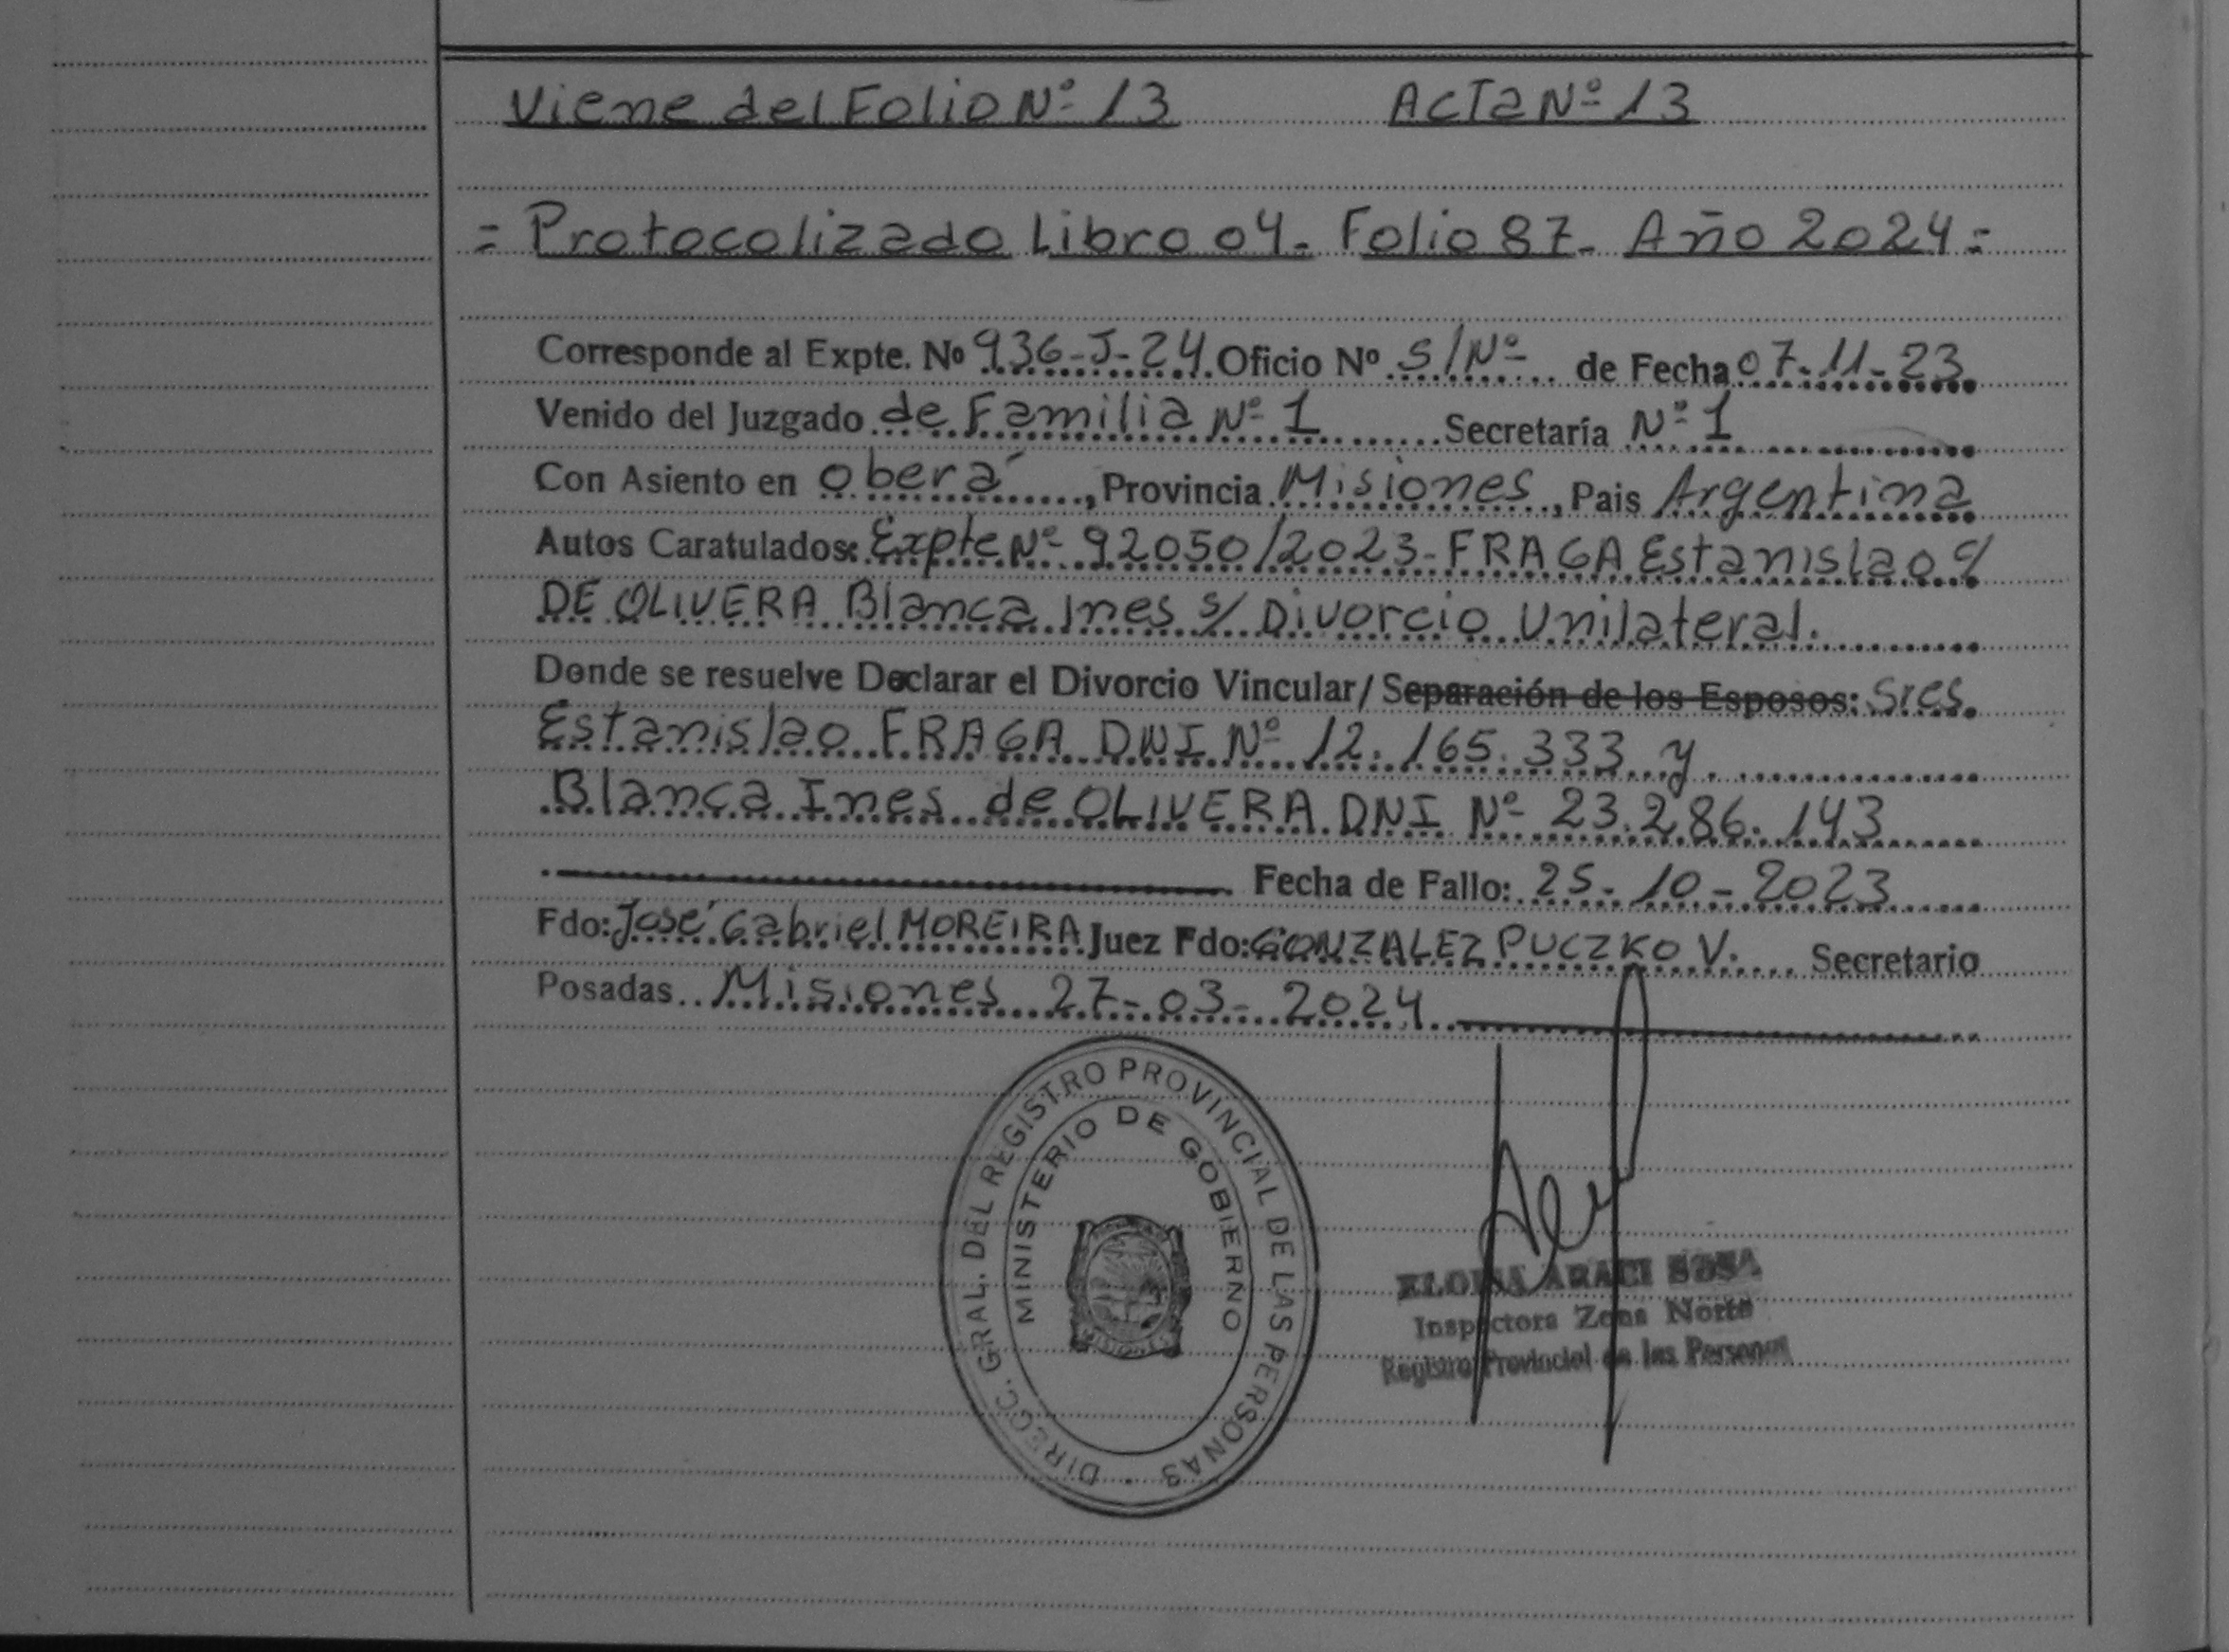 Viene del Folio Nº 13 Acta Nº 13
= Protocolizado Libro 04- Folio 87- Año 2024=
Corresponde al Expte. Nº 936-J-24 Oficio Nº S/Nº de Fecha 07-11-23
Venido del Juzgado de Familia Nº 1 Secretaría Nº 1
Con Asiento en Oberá, Provincia Misiones, Pais Argentina
Autos Caratulados: Expte Nº 92050/2023- FRAGA Estanislao c/
DE OLIVERA Blanca Ines s/ Divorcio Unilateral.
Donde se resuelve Declarar el Divorcio Vincular/ Separación de los Esposos: Sres.
Estanislao FRAGA DNI Nº 12.165.333 y
Blanca Ines de OLIVERA DNI Nº 23.286.143
Fecha de Fallo: 25-10-2023
Fdo: José Gabriel MOREIRA Juez Fdo: GONZALEZ PUCZKO V. Secretario
Posadas Misiones 27-03-2024
DIRECC. GRAL. DEL REGISTRO PROVINCIAL DE LAS PERSONAS
MINISTERIO DE GOBIERNO
MISIONES
ELOISA ARACI SOSA
Inspectora Zona Norte
Registro Provincial de las Personas